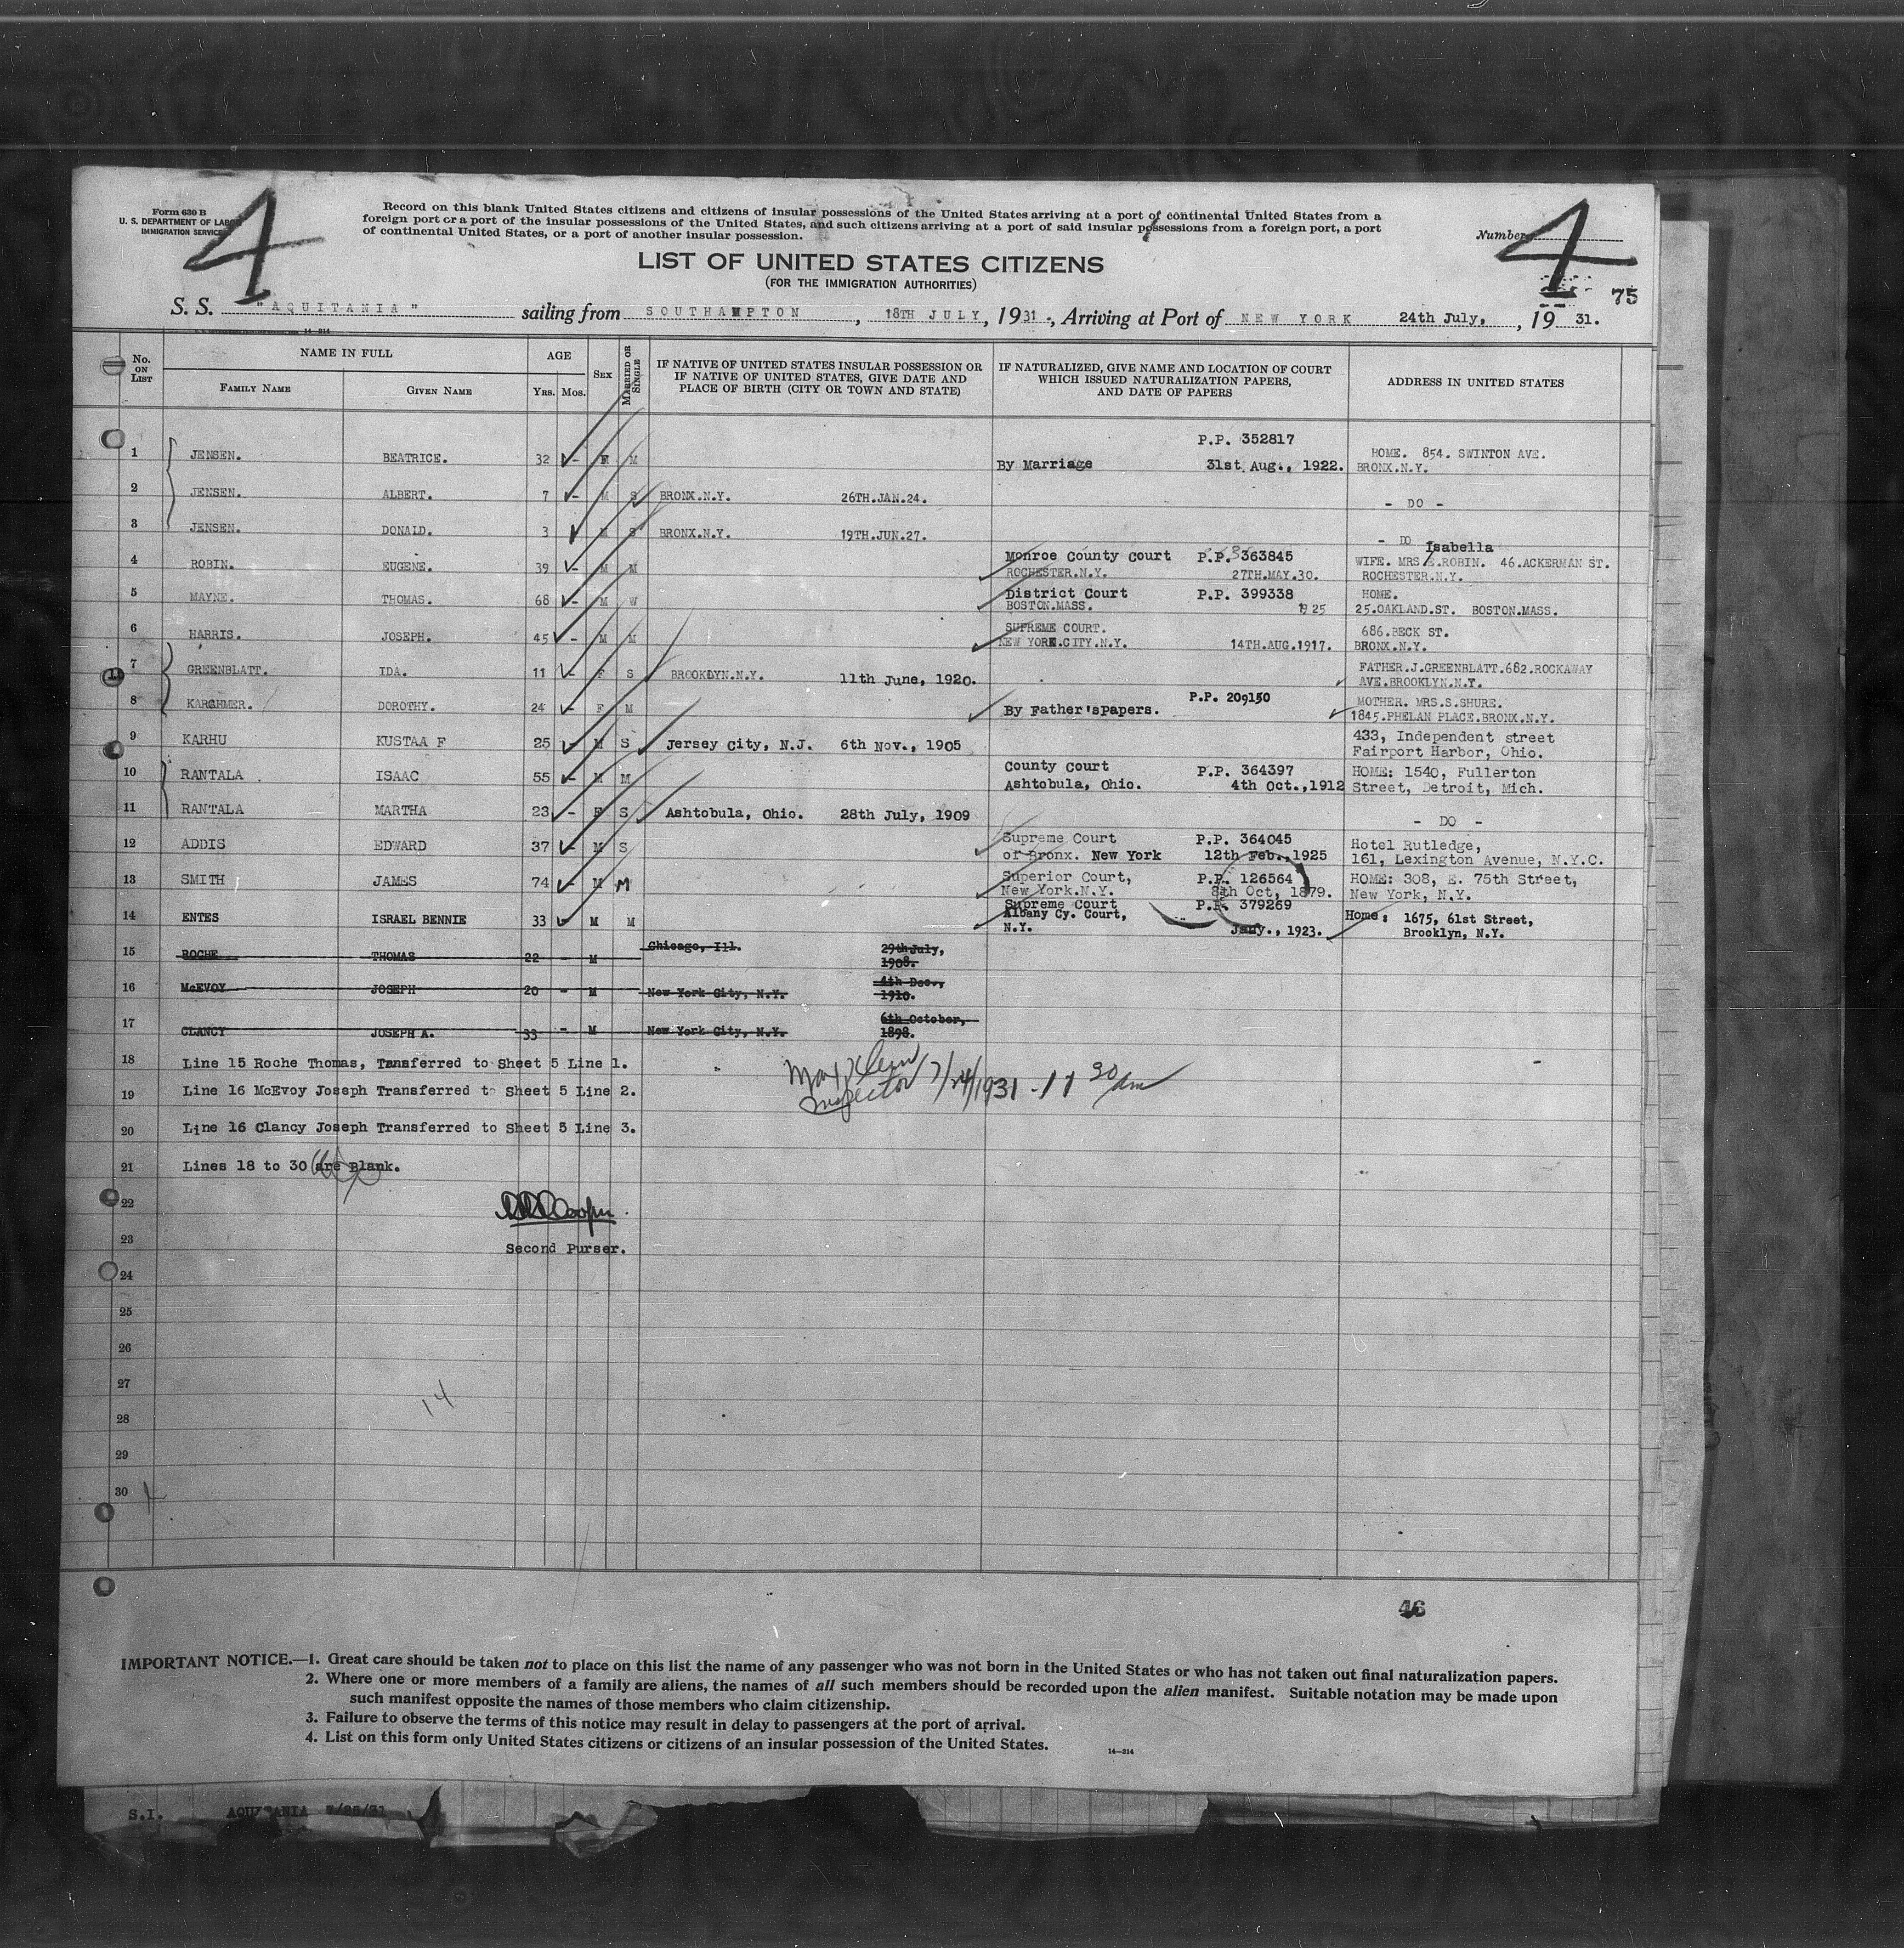 4
4
Form 630 B
U. S. DEPARTMENT OF LABOR
IMMIGRATION SERVICE
Record on this blank United States citizens and citizens of insular possessions of the United States arriving at a port of continental United States from a
foreign port or a port of the insular possessions of the United States, and such citizens arriving at a port of said insular possessions from a foreign port, a port
of continental United States, or a port of another insular possession.
Number
LIST OF UNITED STATES CITIZENS
(FOR THE IMMIGRATION AUTHORITIES)
75
S. S. "AQUITANIA" sailing from SOUTHAMPTON, 18TH JULY, 1931., Arriving at Port of NEW YORK 24th July, , 19 31.
14-214
No. ON LIST NAME IN FULL AGE SEX MARRIED OR SINGLE IF NATIVE OF UNITED STATES INSULAR POSSESSION OR IF NATIVE OF UNITED STATES, GIVE DATE AND PLACE OF BIRTH (CITY OR TOWN AND STATE) IF NATURALIZED, GIVE NAME AND LOCATION OF COURT WHICH ISSUED NATURALIZATION PAPERS, AND DATE OF PAPERS ADDRESS IN UNITED STATES
FAMILY NAME GIVEN NAME Yrs. Mos.
P.P. 352817
1 JENSEN. BEATRICE. 32 - F M By Marriage 31st Aug., 1922. HOME. 854. SWINTON AVE. BRONX.N.Y.
2 JENSEN. ALBERT. 7 - M S BRONX.N.Y. 26TH.JAN.24. - DO -
3 JENSEN. DONALD. 3 M S BRONX.N.Y. 19TH.JUN.27. - DO
Isabella
4 ROBIN. EUGENE. 39 - M M Monroe County Court P.P. 363845 WIFE. MRS E.ROBIN. 46.ACKERMAN ST.
ROCHESTER.N.Y. 27TH.MAY.30. ROCHESTER.N.Y.
5 MAYNE. THOMAS. 68 - M W District Court P.P. 399338 HOME.
BOSTON.MASS. 1925 25.OAKLAND.ST. BOSTON.MASS.
6 HARRIS. JOSEPH. 45 - M M SUPREME COURT. 686.BECK ST.
NEW YORK.CITY.N.Y. 14TH.AUG.1917. BRONX.N.Y.
7 GREENBLATT. IDA. 11 - F S BROOKLYN.N.Y. 11th June, 1920. FATHER.J.GREENBLATT.682.ROCKAWAY
AVE.BROOKLYN.N.Y.
8 KARCHMER. DOROTHY. 24 - F M By Father'sPapers. P.P. 209150 MOTHER. MRS.S.SHURE.
1845.PHELAN PLACE.BRONX.N.Y.
9 KARHU KUSTAA F 25 - M S Jersey City, N.J. 6th Nov., 1905 433, Independent street
Fairport Harbor, Ohio.
10 RANTALA ISAAC 55 - M M County Court P.P. 364397 HOME: 1540, Fullerton
Ashtobula, Ohio. 4th Oct.,1912 Street, Detroit, Mich.
11 RANTALA MARTHA 23 - F S Ashtobula, Ohio. 28th July, 1909 - DO -
12 ADDIS EDWARD 37 - M S Supreme Court P.P. 364045 Hotel Rutledge,
of Bronx. New York 12th Feb.,1925 161, Lexington Avenue, N.Y.C.
13 SMITH JAMES 74 - M M Superior Court, P.P. 126564 HOME: 308, E. 75th Street,
New York.N.Y. 8th Oct, 1879. New York, N.Y.
14 ENTES ISRAEL BENNIE 33 - M M Supreme Court P.P. 379269 Home: 1675, 61st Street,
Albany Cy. Court, Brooklyn, N.Y.
N.Y. Jany., 1923.
15 ROCHE THOMAS 22 - M Chicago, Ill. 29th July,
1908.
16 McEVOY JOSEPH 20 - M New York City, N.Y. 4th Dec.,
1910.
17 CLANCY JOSEPH A. 33 - M New York City, N.Y. 6th October,
1898.
18 Line 15 Roche Thomas, Transferred to Sheet 5 Line 1.
Max Klein
Inspector 7/24/1931 - 11 30 am
19 Line 16 McEvoy Joseph Transferred to Sheet 5 Line 2.
20 Line 16 Clancy Joseph Transferred to Sheet 5 Line 3.
21 Lines 18 to 30 are Blank.
22
Cooper
23 Second Purser.
24
25
26
27
14
28
29
30
46
IMPORTANT NOTICE.—1. Great care should be taken not to place on this list the name of any passenger who was not born in the United States or who has not taken out final naturalization papers.
2. Where one or more members of a family are aliens, the names of all such members should be recorded upon the alien manifest. Suitable notation may be made upon
such manifest opposite the names of those members who claim citizenship.
3. Failure to observe the terms of this notice may result in delay to passengers at the port of arrival.
4. List on this form only United States citizens or citizens of an insular possession of the United States.
14—214
S.I. AQUITANIA